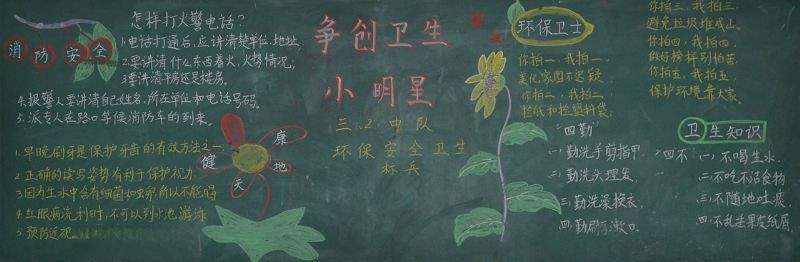 消防安全
怎样打火警电话？
1.电话打通后，应讲清楚单位，地址，
2.要讲清什么东西着火，火势情况，
3.要讲清平房还是楼房。
4.报警人要讲清自己姓名，所在单位和电话号码。
5.派专人在路口等候消防车的到来。
1.早晚刷牙是保护牙齿的有效方法之一
2.正确的读写姿势有利于保护视力
3.因为生水中含有细菌和虫卵所以不能喝
4.红眼病流行时，不可以到水池游泳
5.预防近视
健康
天地
争创卫生
小明星
三.2中队
环保安全卫生
标兵
环保卫士
你拍一，我拍一，
美化家园不迟疑
你拍二，我拍二，
捡纸和捡塑料袋
你拍三，我拍三，
避免垃圾堆成山。
你拍四，我拍四，
做好榜样别怕苦
你拍五，我拍五，
保护环境靠大家
"四勤"
一.勤洗手剪指甲
二.勤洗头理发
三.勤洗澡换衣
四.勤刷牙漱口
卫生知识
"四不"
一.不喝生水.
二.不吃不洁食物
三.不随地吐痰
四.不乱丢果皮纸屑